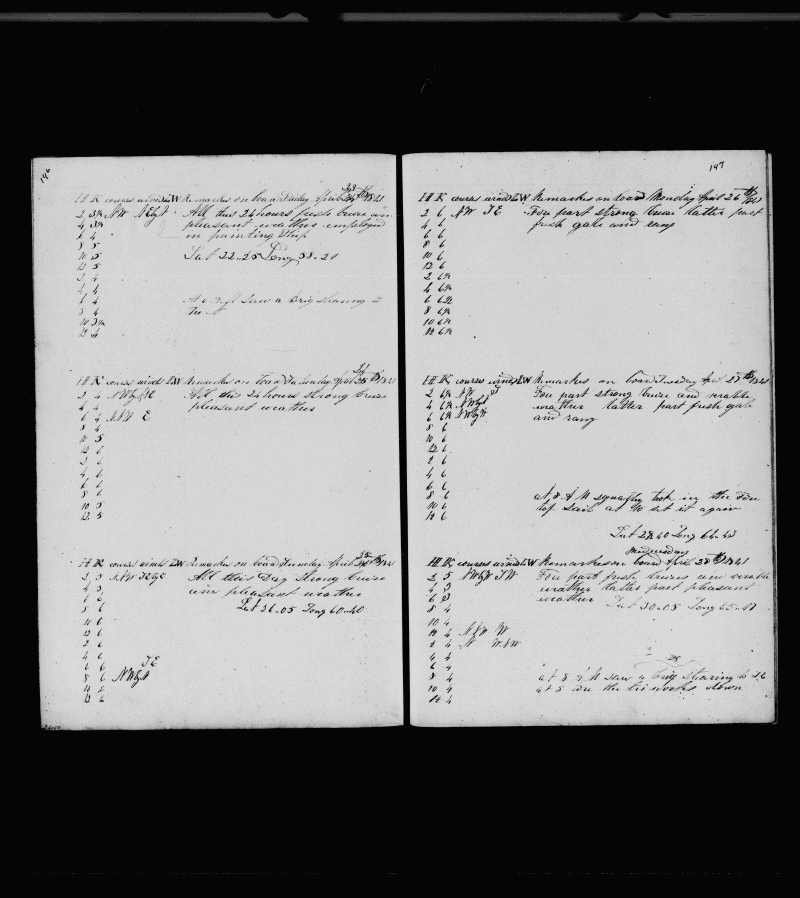 146
H K courses winds LW Remarks on board Friday April 23 1841
2 3½ NW N E by N All this 24 hours fresh breze an
4 3½ pleasant wather employed
6 4 in painting Ship
8 5
10 5 Lat 22-25 Long 58-21
12 5
2 4
4 4
6 4 saw a brig stearing
8 4 the N
10 3½
12 4
H K courses winds LW Remarks on board Saturday April 24 1841
2 4 NW by N E All this 24 hours strong breze
4 4 pleasant wather
6 4 NNW E
8 4
10 5
12 6
2 6
4 6
6 6
8 6
10 5
12 5
H K courses winds LW Remarks on board Sunday April 25 1841
2 3 NNW All this Day Strong breze
4 3 an pleasant wather
6 6 Lat 26-05 Long 60-40
8 6
10 6
12 6
2 6
4 6
6 6 S E
8 6 NW by N
10 6
12 6
147
H K courses winds LW Remarks on board Monday April 26th 1841
2 6 NW S E Fore part strong breze latter part
4 6 fresh gale and rany
6 6
8 6
10 6
12 6
2 6½
4 6½
6 6½
8 6½
10 6½
12 6½
H K courses winds LW Remarks on board Tuesday Apr 27th 1841
2 6½ NW S Fore part strong breze and
4 6½ NW by N wrather latter part fresh gale
6 6½ NW by W and rany
8 6
10 6
12 6
2 6
4 6
6 6
8 6 At 8 A M squally took in the Fore
10 6 top sail at M set it again
12 6
Lat 28 40 Long 64-43
Wednesday
H K courses winds LW Remarks on board April 28th 1841
2 5 NW by W S W Fore part fresh brezes an
4 3 wrather latter part pleasant
6 3 weather Lat 30-08 Long 65-47
8 4
10 4
12 4 N N W W
2 4 N W N W
4 4
6 4
8 4 at 8 A M saw a brig stearing to S E
10 4 at 5 down
12 4